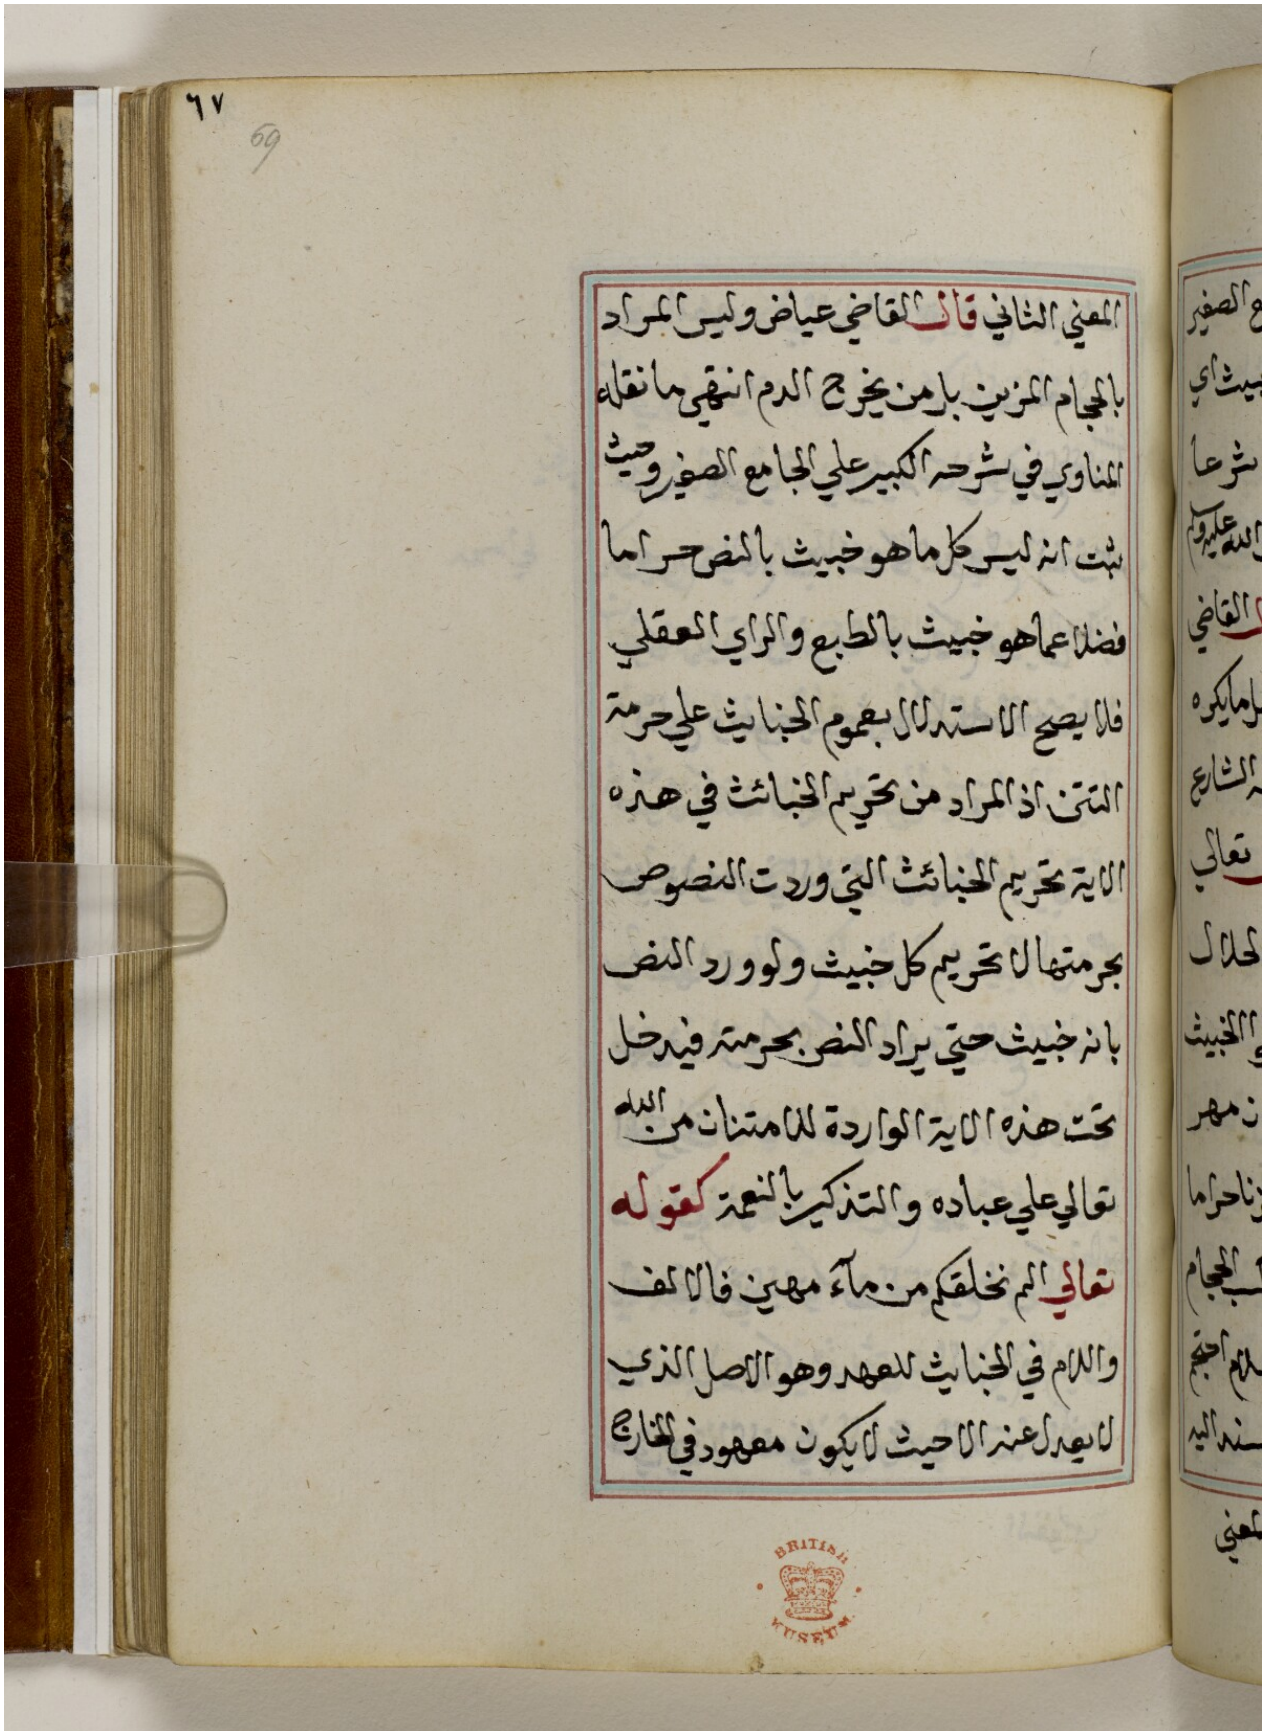 ٦٧
69
المعني الثاني قال القاضي عياض وليس المراد
بالحجام المزين بل من يخرج الدم انتهي ما نقله
المناوي في شرحه الكبير علي الجامع الصغير وحيث
ثبت انه ليس كل ما هو خبيث بالنص حراما
فضلا عما هو خبيث بالطبع والراي العقلي
فلا يصح الاستدلال بعموم الخبايث علي حرمة
التتن اذ المراد من تحريم الخبائث في هذه
الاية تحريم الخبائث التي وردت النصوص
بحرمتها لا تحريم كل خبيث ولو ورد النص
بانه خبيث حتي يراد النص بحرمته فيدخل
تحت هذه الاية الواردة للامتنان من الله
تعالي علي عباده والتذكير بالنعمة كقوله
تعالي الم نخلقكم من مآء مهين فالالف
واللام في الخبايث للعهد وهو الاصل الذي
لا يعدل عنه الا حيث لا يكون معهود في الخارج
BRITISH
MUSEUM
الصغير
اي
شرعا
الله عليه وسلم
القاضي
ما يكره
الشارع
تعالي
الحلال
الخبيث
مهر
حراما
الحجام
احتجم
اليه
المعني